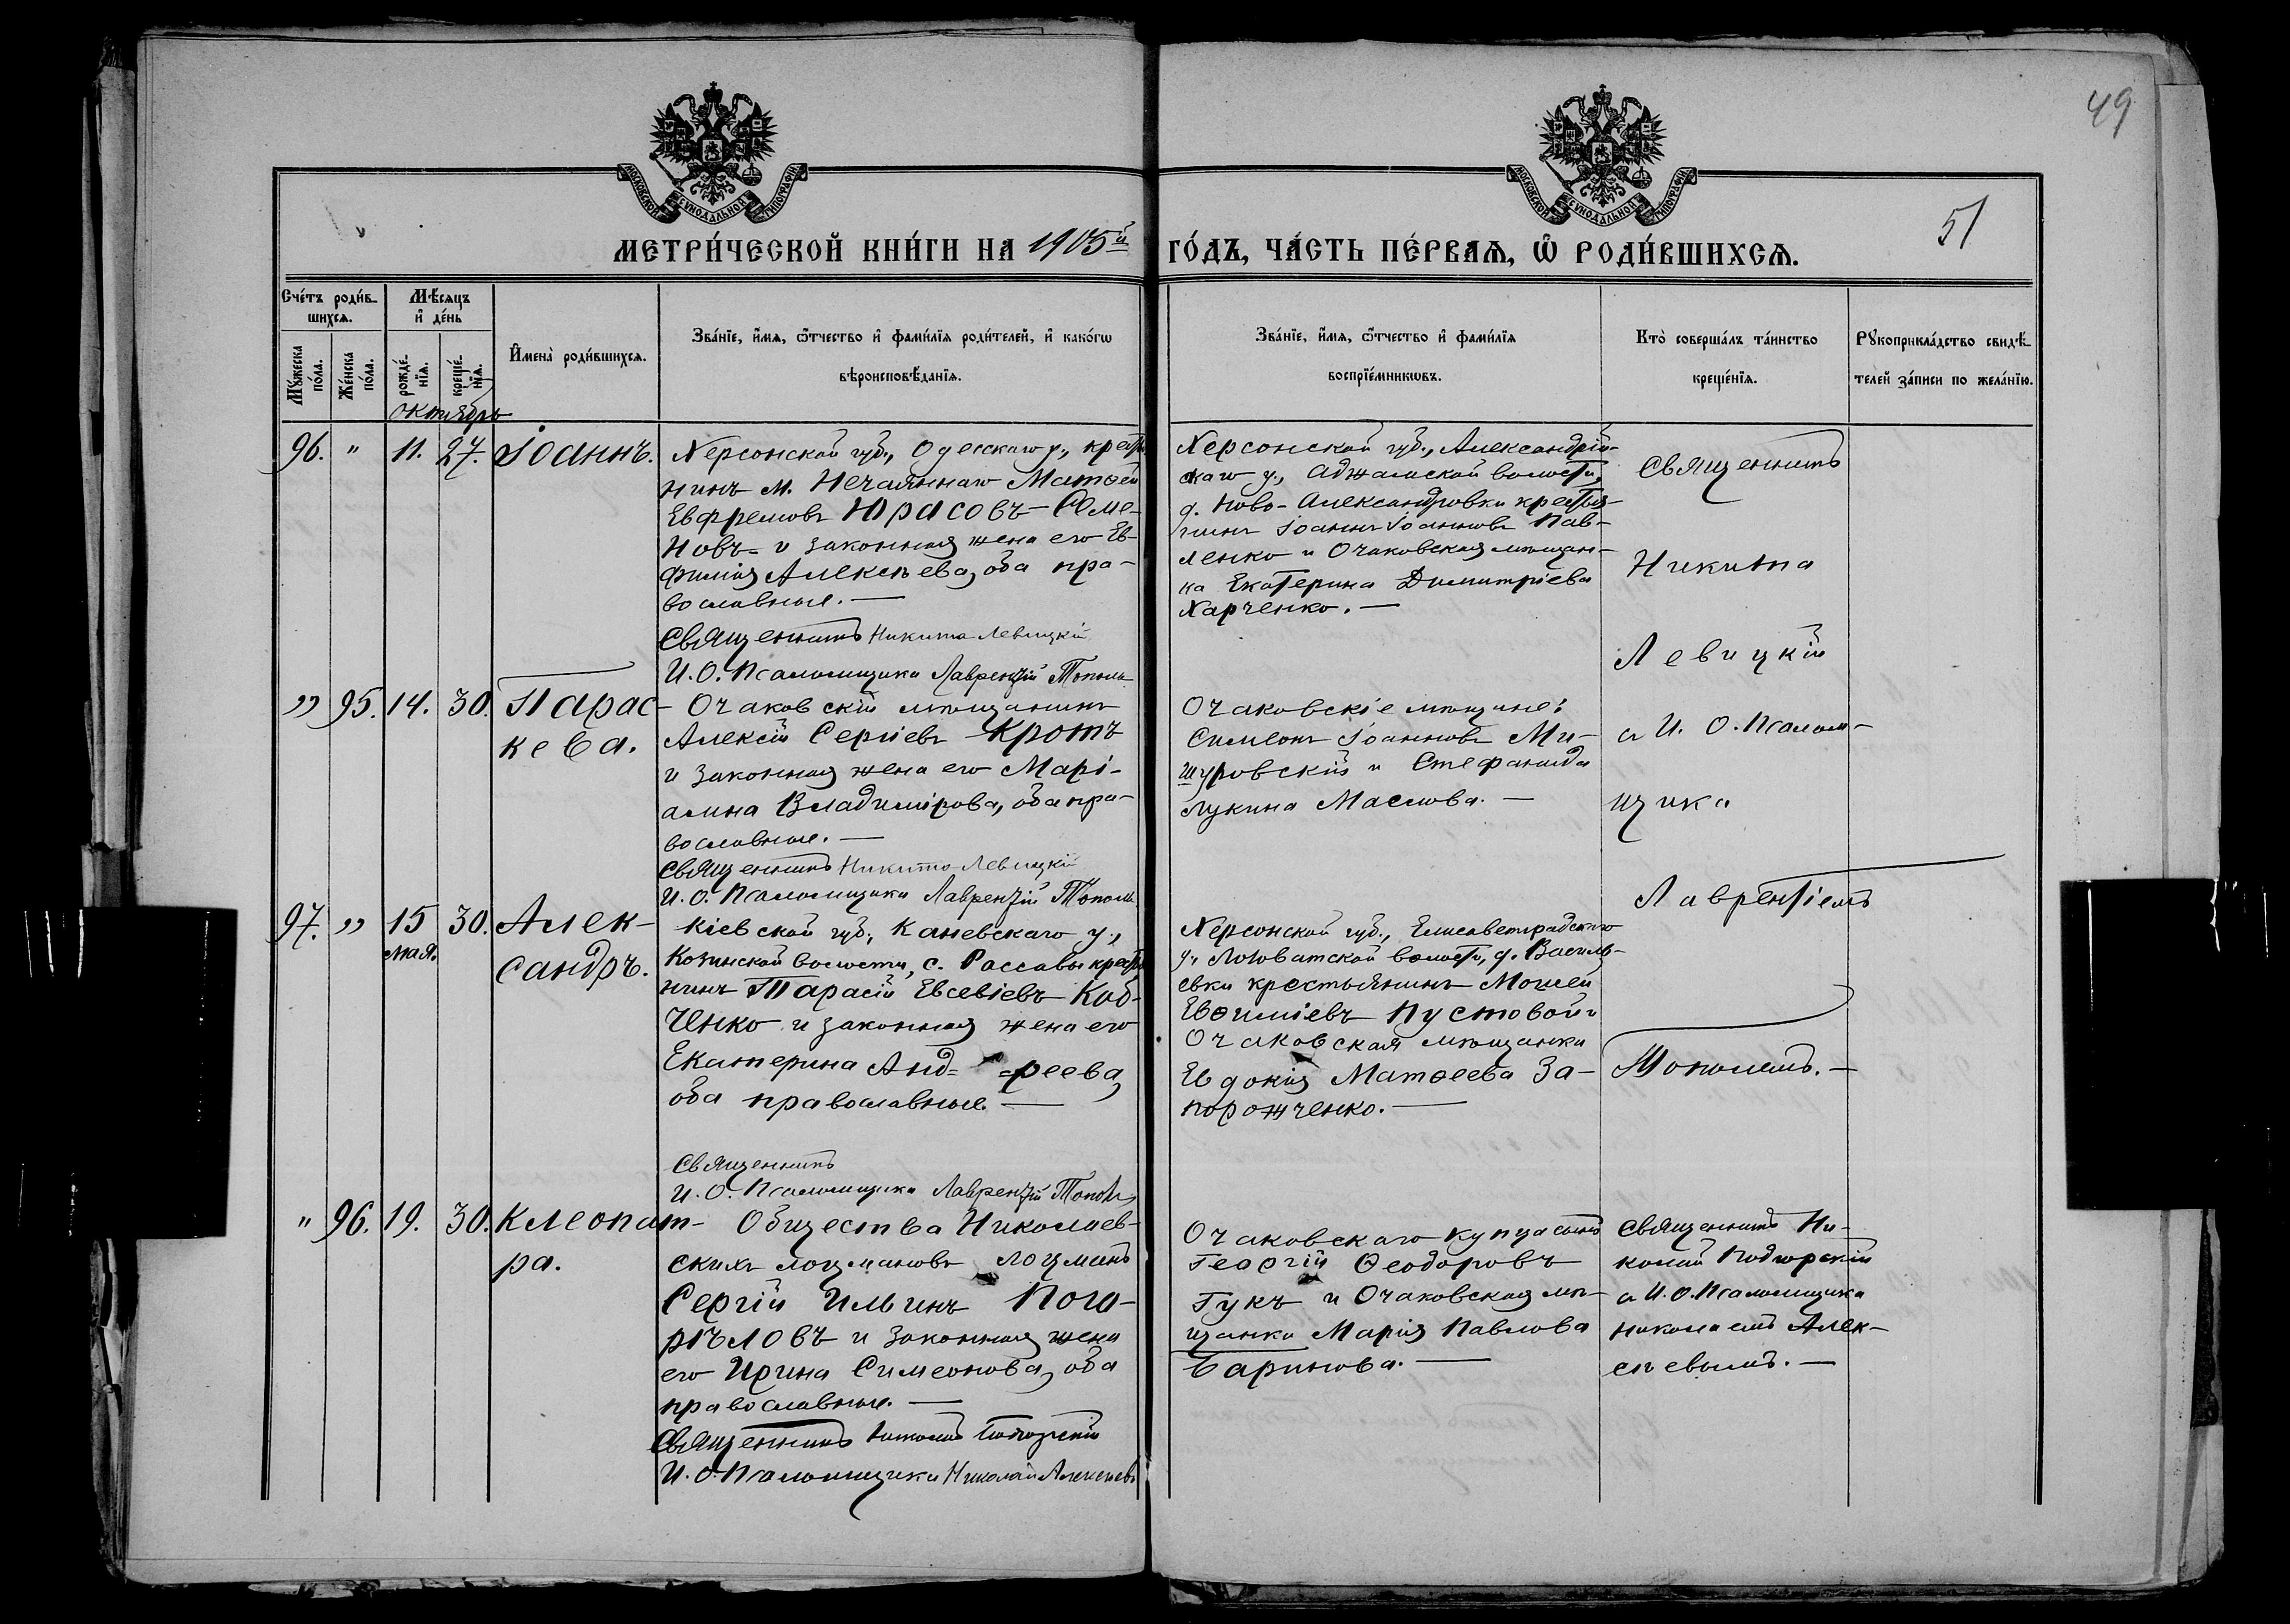 49
51
МОСКОВСКОЙ СѴНОДАЛЬНОЙ ТИПОГРАФІИ
МОСКОВСКОЙ СѴНОДАЛЬНОЙ ТИПОГРАФІИ
МЕТРИ́ЧЕСКОЙ КНИ́ГИ НА 1905й
ГО́ДЪ, ЧА́СТЬ ПЕ́РВАѦ, Ѽ РОДИ́ВШИХСѦ.
Сче́тъ роди́в-
шихсѧ.
Мѣ́сѧцъ
и҆ де́нь
Мꙋ́жеска
по́ла.
Же́нска
по́ла.
рожде́-
нїѧ.
креще́-
нїѧ.
И҆мена̀ роди́вшихсѧ.
Зва́нїе, и҆́мѧ, ѻ҆́тчество и҆ фами́лїѧ роди́телей, и҆ како́гѡ
вѣроисповѣ́данїѧ.
Зва́нїе, и҆́мѧ, ѻ҆́тчество и҆ фами́лїѧ
воспрїе́мникѡвъ.
Кто̀ соверша́лъ та́инство
креще́нїѧ.
Рꙋкоприкла́дство свидѣ́-
телей за́писи по жела́нїю.
Октябрь
96. " 11. 27. Іоаннъ.
Херсонской губ., Одесскаго у., крестья
нинъ м. Нечаяннаго Матѳей
Евфремовъ Юрасовъ-Семе-
новъ и законная жена его Ев-
фимія Алексѣева, оба пра-
вославные.
Священникъ Никита Левицкій
И. О. Псаломщика Лаврентій Тополь
Херсонской губ., Александрій-
скаго у., Аджамской волости,
д. Ново-Александровки крестья-
нинъ Іоаннъ Іоанновъ Пав-
ленко и Очаковская мѣщан-
ка Екатерина Димитріева
Харченко.
Священникъ
Никита
Левицкій
и И. О. Псалом-
щика
Лаврентіемъ
Тополемъ.
" 95. 14. 30. Парас-
кева.
Очаковскій мѣщанинъ
Алексій Сергіевъ Кротъ
и законная жена его Марі-
амна Владимірова, оба пра-
вославные.
Священникъ Никита Левицкій
И. О. Псаломщика Лаврентій Тополь
Очаковскіе мѣщане:
Симеонъ Іоанновъ Ми-
шуровскій и Стефанида
Лукина Маслова.
97. " 15 мая. 30. Алек-
сандръ.
Кіевской губ., Каневскаго у.,
Козинской волости, с. Рассавы крестья
нинъ Тарасій Евсевіевъ Коб-
ченко и законная жена его
Екатерина Анд- -реева,
оба православные.
Священникъ
И. О. Псаломщика Лаврентій Тополь
Херсонской губ., Елисаветградскаго
у., Ловатской волости, д. Василь-
евки крестьянинъ Моисей
Евѳиміевъ Пустовой и
Очаковская мѣщанка
Евдокія Матѳеева За-
порожченко.
" 96. 19. 30. Клеопат-
ра.
Общества Николаев-
скихъ лоцмановъ лоцманъ
Сергій Ильинъ Пого-
рѣловъ и законная жена
его Ирина Симеонова, оба
православные.
Священникъ Николай Подгорскій
И. О. Псаломщика Николай Алексѣевъ
Очаковскаго купца сынъ
Георгій Ѳеодоровъ
Гукъ и Очаковская мѣ-
щанка Марія Павлова
Баринова.
Священникъ Ни-
колай Подгорскій
и И. О. Псаломщика
Николаемъ Алек-
сѣевымъ.